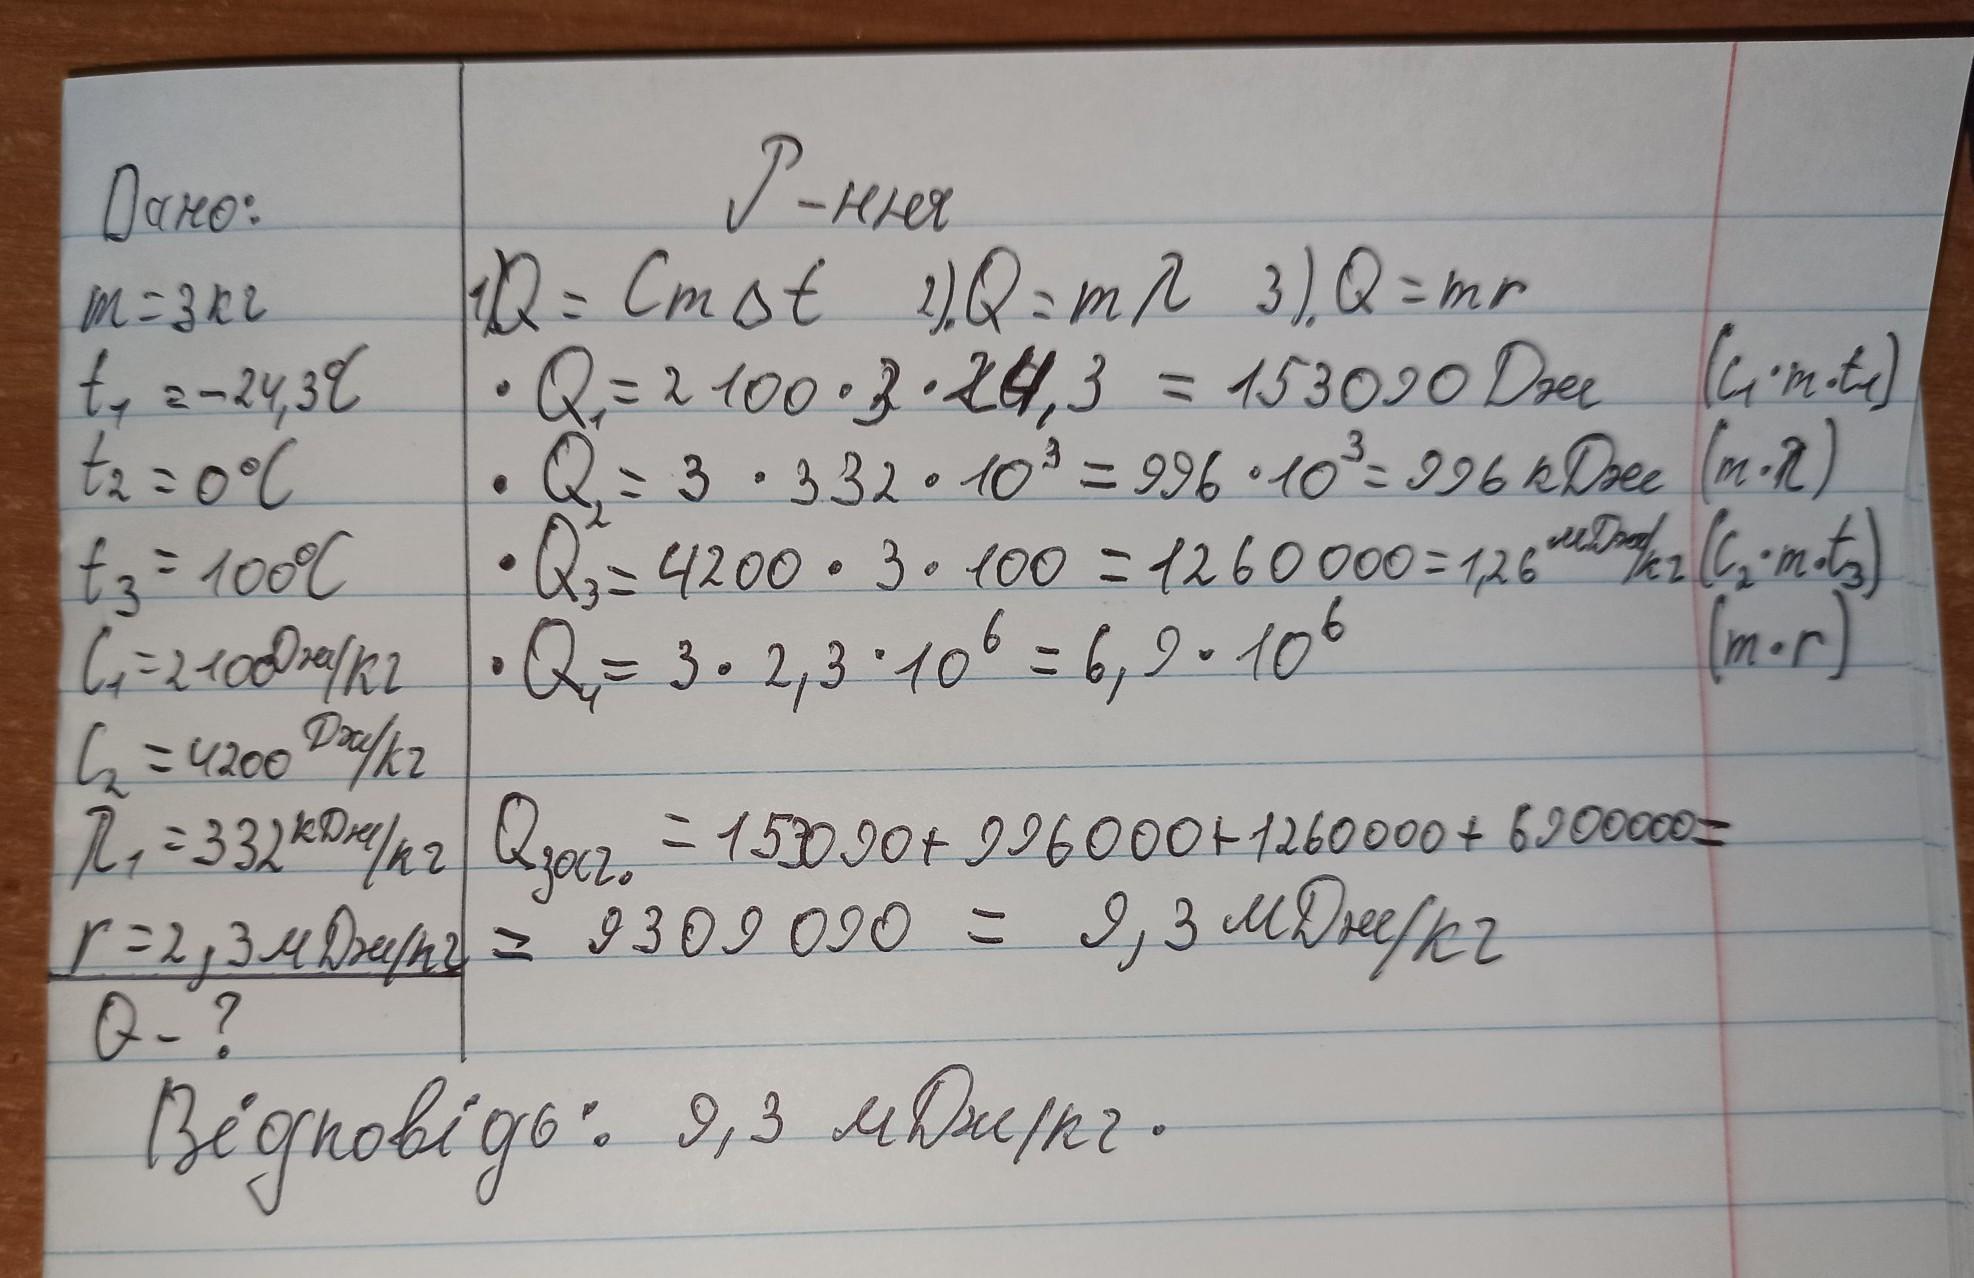 Дано:
m = 3 кг
t₁ = -24,3℃
t₂ = 0°C
t₃ = 100°C
C₁ = 2100 Дж/кг
C₂ = 4200 Дж/кг
λ₁ = 332 кДж/кг
r = 2,3 мДж/кг
Q - ?
Р-ння
1) Q = Cm∆t 2). Q = mλ 3). Q = mr
• Q₁ = 2100 · 3 · 24,3 = 153090 Дж (C₁·m·t₁)
• Q₂ = 3 · 332 · 10³ = 996 · 10³ = 996 кДж (m·λ)
• Q₃ = 4200 · 3 · 100 = 1260000 = 1,26 мДж/кг (C₂·m·t₃)
• Q₄ = 3 · 2,3 · 10⁶ = 6,9 · 10⁶ (m·r)
Qзаг. = 153090 + 996000 + 1260000 + 6900000 =
= 9309090 = 9,3 мДж/кг
Відповідь: 9,3 мДж/кг.